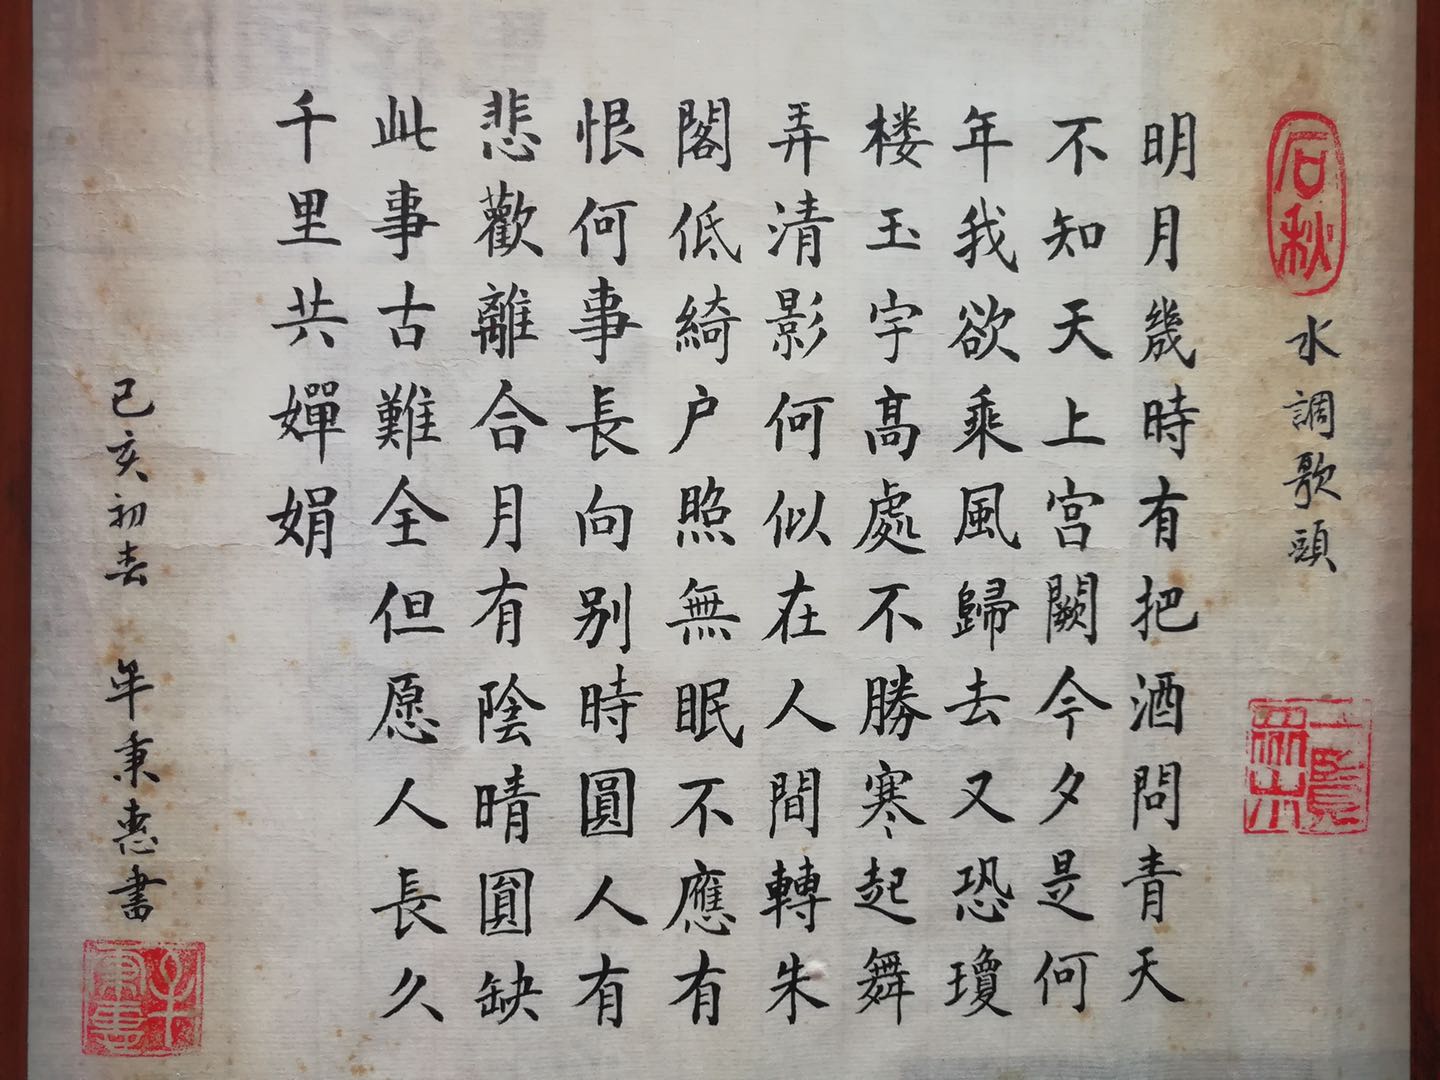 水調歌頭
明月幾時有把酒問青天
不知天上宫闕今夕是何
年我欲乘風歸去又恐瓊
楼玉宇髙處不勝寒起舞
弄清影何似在人間轉朱
閣低綺户照無眠不應有
恨何事長向别時圓人有
悲歡離合月有陰晴圓缺
此事古難全但愿人長久
千里共嬋娟
己亥初春 牟秉惠書